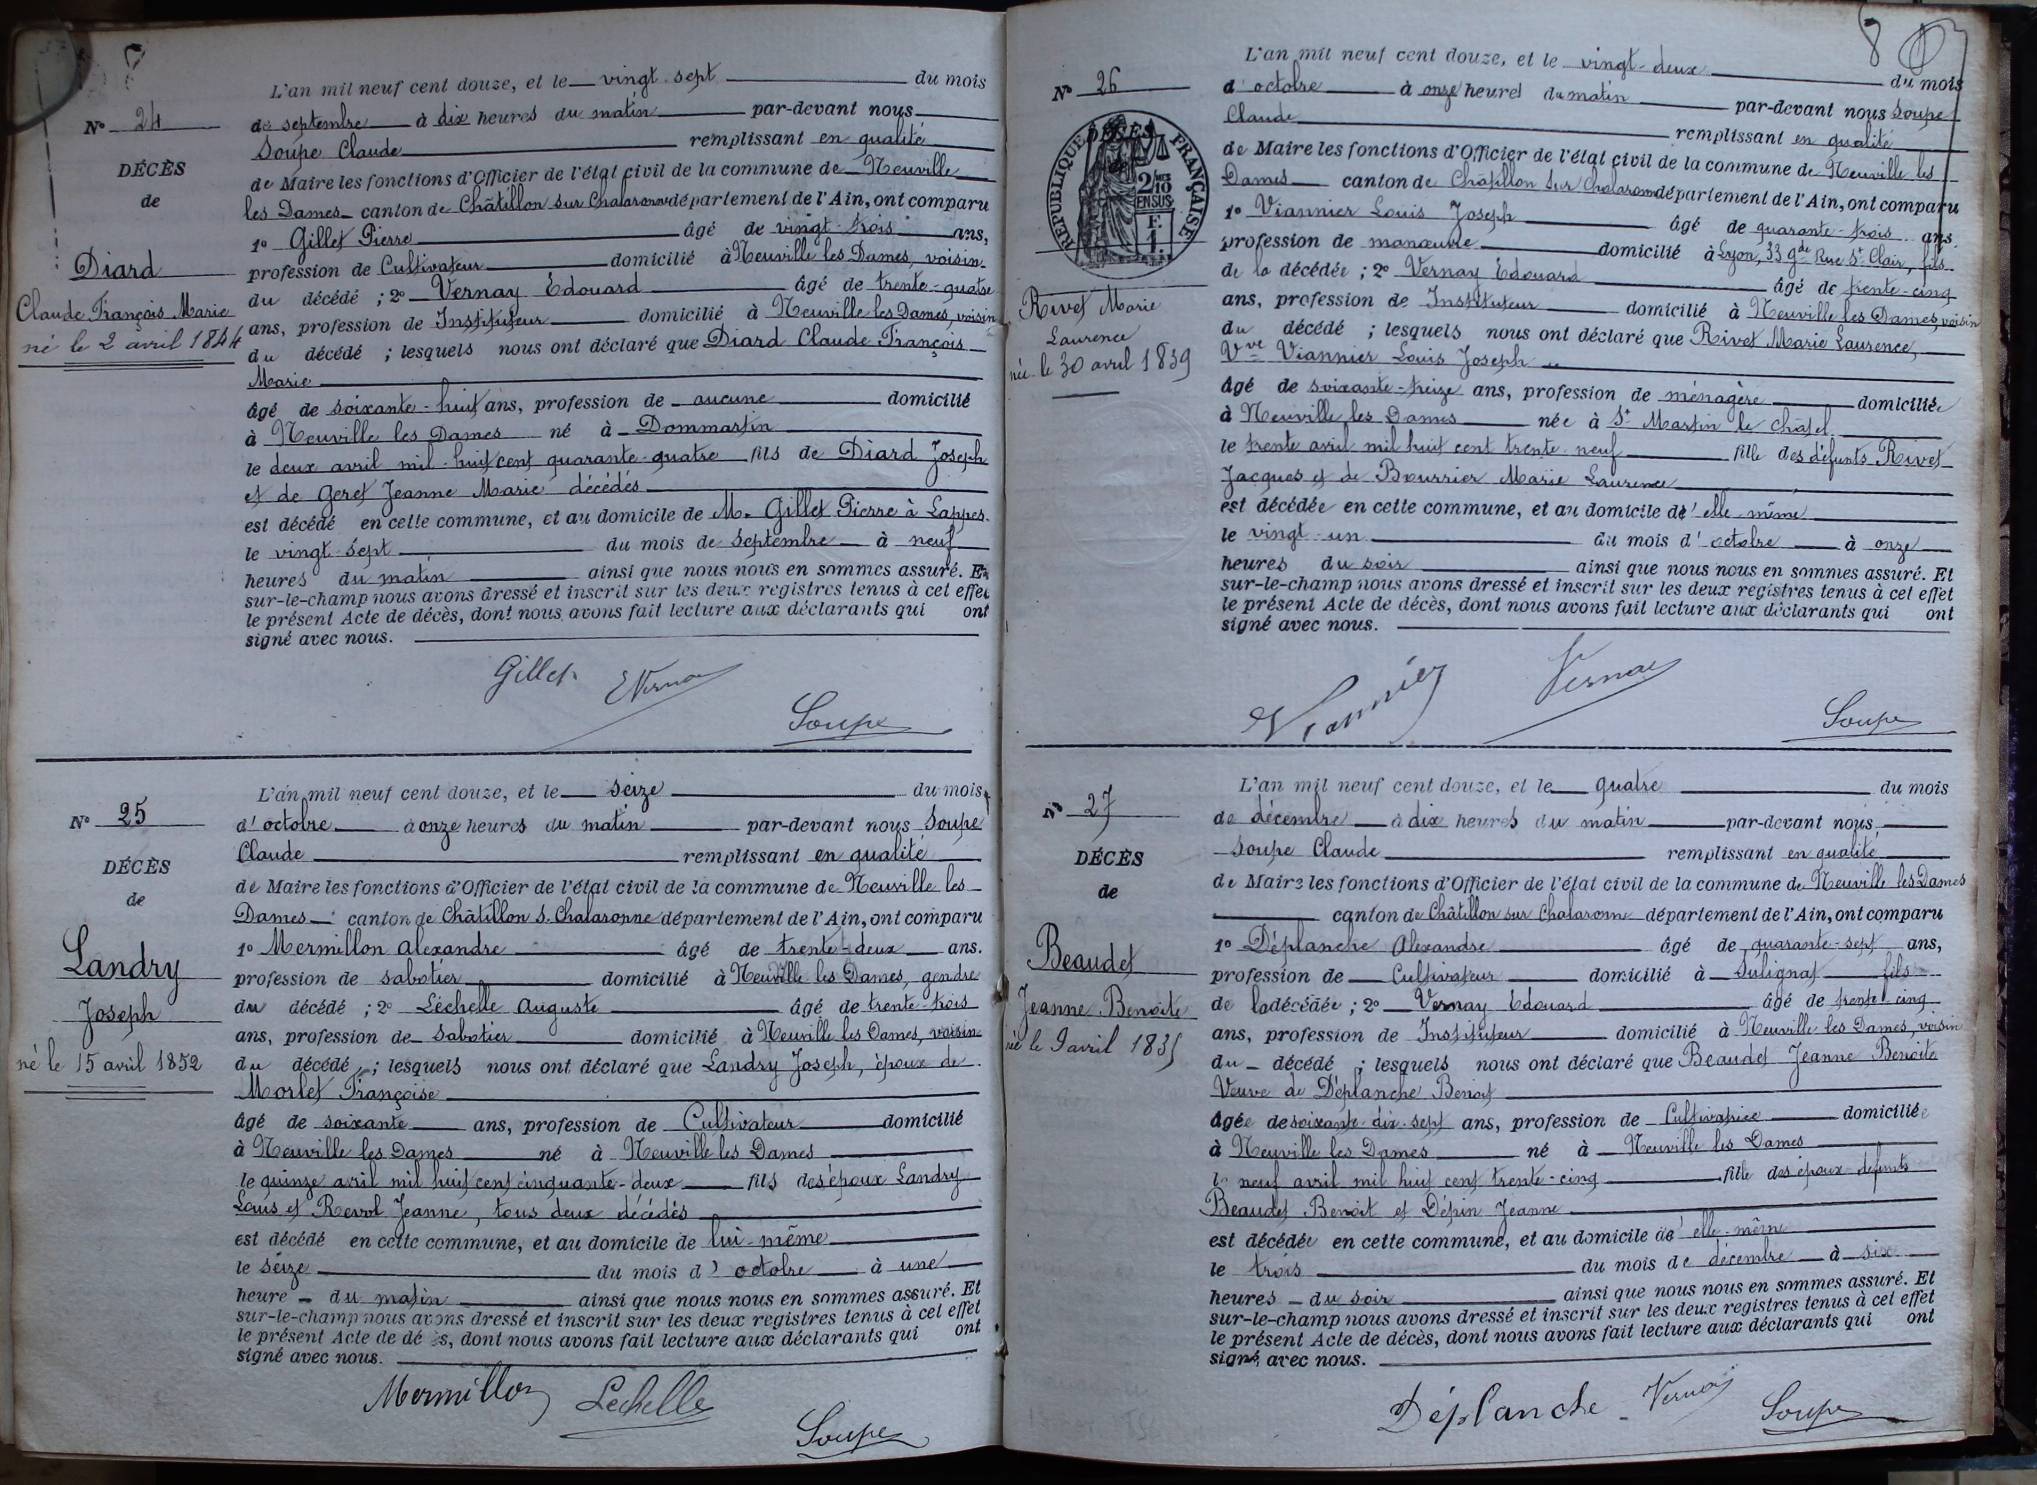 7
L'an mil neuf cent douze, et le vingt-sept du mois
N° 24
de septembre à dix heures du matin par-devant nous
Soupe Claude remplissant en qualité
DÉCÈS
de Maire les fonctions d'Officier de l'état civil de la commune de Neuville
de
les Dames canton de Châtillon sur Chalaronne département de l'Ain, ont comparu
1° Gillet Pierre âgé de vingt-trois ans,
Diard
profession de Cultivateur domicilié à Neuville les Dames, voisin
Claude François Marie
du décédé ; 2° Vernay Edouard âgé de trente-quatre
né le 2 avril 1844
ans, profession de Instituteur domicilié à Neuville les Dames, voisin
du décédé ; lesquels nous ont déclaré que Diard Claude François
Marie
âgé de soixante-huit ans, profession de aucune domicilié
à Neuville les Dames né à Dommartin
le deux avril mil-huit cent quarante-quatre fils de Diard Joseph
et de Geret Jeanne Marie décédés
est décédé en cette commune, et au domicile de M. Gillet Pierre à Lappes
le vingt-sept du mois de septembre à neuf
heures du matin ainsi que nous nous en sommes assuré. Et
sur-le-champ nous avons dressé et inscrit sur les deux registres tenus à cet effet
le présent Acte de décès, dont nous avons fait lecture aux déclarants qui ont
signé avec nous.
Gillet EVernay
Soupe
L'an mil neuf cent douze, et le seize du mois
N° 25
d'octobre à onze heures du matin par-devant nous Soupe
Claude remplissant en qualité
DÉCÈS
de Maire les fonctions d'Officier de l'état civil de la commune de Neuville les
de
Dames canton de Châtillon s. Chalaronne département de l'Ain, ont comparu
1° Mermillon Alexandre âgé de trente-deux ans.
Landry
profession de sabotier domicilié à Neuville les Dames, gendre
Joseph
du décédé ; 2° Léchelle Auguste âgé de trente-trois
ans, profession de Sabotier domicilié à Neuville les Dames, voisin
né le 15 avril 1852
du décédé ; lesquels nous ont déclaré que Landry Joseph, époux de
Morlet Françoise
âgé de soixante ans, profession de Cultivateur domicilié
à Neuville les Dames né à Neuville les Dames
le quinze avril mil huit cent cinquante-deux fils des époux Landry
Louis et Revol Jeanne, tous deux décédés
est décédé en cette commune, et au domicile de lui-même
le seize du mois d'octobre à une
heure du matin ainsi que nous nous en sommes assuré. Et
sur-le-champ nous avons dressé et inscrit sur les deux registres tenus à cet effet
le présent Acte de décès, dont nous avons fait lecture aux déclarants qui ont
signé avec nous.
Mermillon Lechelle
Soupe
8
L'an mil neuf cent douze, et le vingt-deux du mois
N° 26
d'octobre à onze heures du matin par-devant nous Soupe
Claude remplissant en qualité
DÉCÈS
RÉPUBLIQUE FRANÇAISE
2/10 EN SUS
de Maire les fonctions d'Officier de l'état civil de la commune de Neuville les
Dames canton de Châtillon sur Chalaronne département de l'Ain, ont comparu
1° Viannier Louis Joseph âgé de quarante-trois ans.
profession de manœuvre domicilié à Lyon, 33 gde Rue St Clair, fils
de la décédée ; 2° Vernay Edouard âgé de trente-cinq
Rivet Marie
Laurence
ans, profession de Instituteur domicilié à Neuville les Dames, voisin
du décédé ; lesquels nous ont déclaré que Rivet Marie Laurence,
née le 30 avril 1839
Vve Viannier Louis Joseph
âgé de soixante-treize ans, profession de ménagère domiciliée
à Neuville les Dames née à St Martin le Châtel
le trente avril mil huit cent trente-neuf fille des défunts Rivet
Jacques et de Bourrier Marie Laurence
est décédée en cette commune, et au domicile d'elle-même
le vingt-un du mois d'octobre à onze
heures du soir ainsi que nous nous en sommes assuré. Et
sur-le-champ nous avons dressé et inscrit sur les deux registres tenus à cet effet
le présent Acte de décès, dont nous avons fait lecture aux déclarants qui ont
signé avec nous.
Viannier Vernay
Soupe
L'an mil neuf cent douze, et le quatre du mois
N° 27
de décembre à dix heures du matin par-devant nous
Soupe Claude remplissant en qualité
DÉCÈS
de Maire les fonctions d'Officier de l'état civil de la commune de Neuville les Dames
de
canton de Châtillon sur Chalaronne département de l'Ain, ont comparu
1° Déplanche Alexandre âgé de quarante-sept ans,
Beaudet
profession de Cultivateur domicilié à Sulignat fils
Jeanne Benoite
de la décédée ; 2° Vernay Edouard âgé de trente cinq
ans, profession de Instituteur domicilié à Neuville les Dames, voisin
né le 9 avril 1835
du décédé ; lesquels nous ont déclaré que Beaudet Jeanne Benoite
Veuve de Déplanche Benoit
âgée de soixante-dix-sept ans, profession de Cultivatrice domiciliée
à Neuville les Dames né à Neuville les Dames
le neuf avril mil huit cent trente-cinq fille des époux défunts
Beaudet Benoit et Dépin Jeanne
est décédée en cette commune, et au domicile d'elle-même
le trois du mois de décembre à six
heures du soir ainsi que nous nous en sommes assuré. Et
sur-le-champ nous avons dressé et inscrit sur les deux registres tenus à cet effet
le présent Acte de décès, dont nous avons fait lecture aux déclarants qui ont
signé avec nous.
Déplanche Vernay Soupe